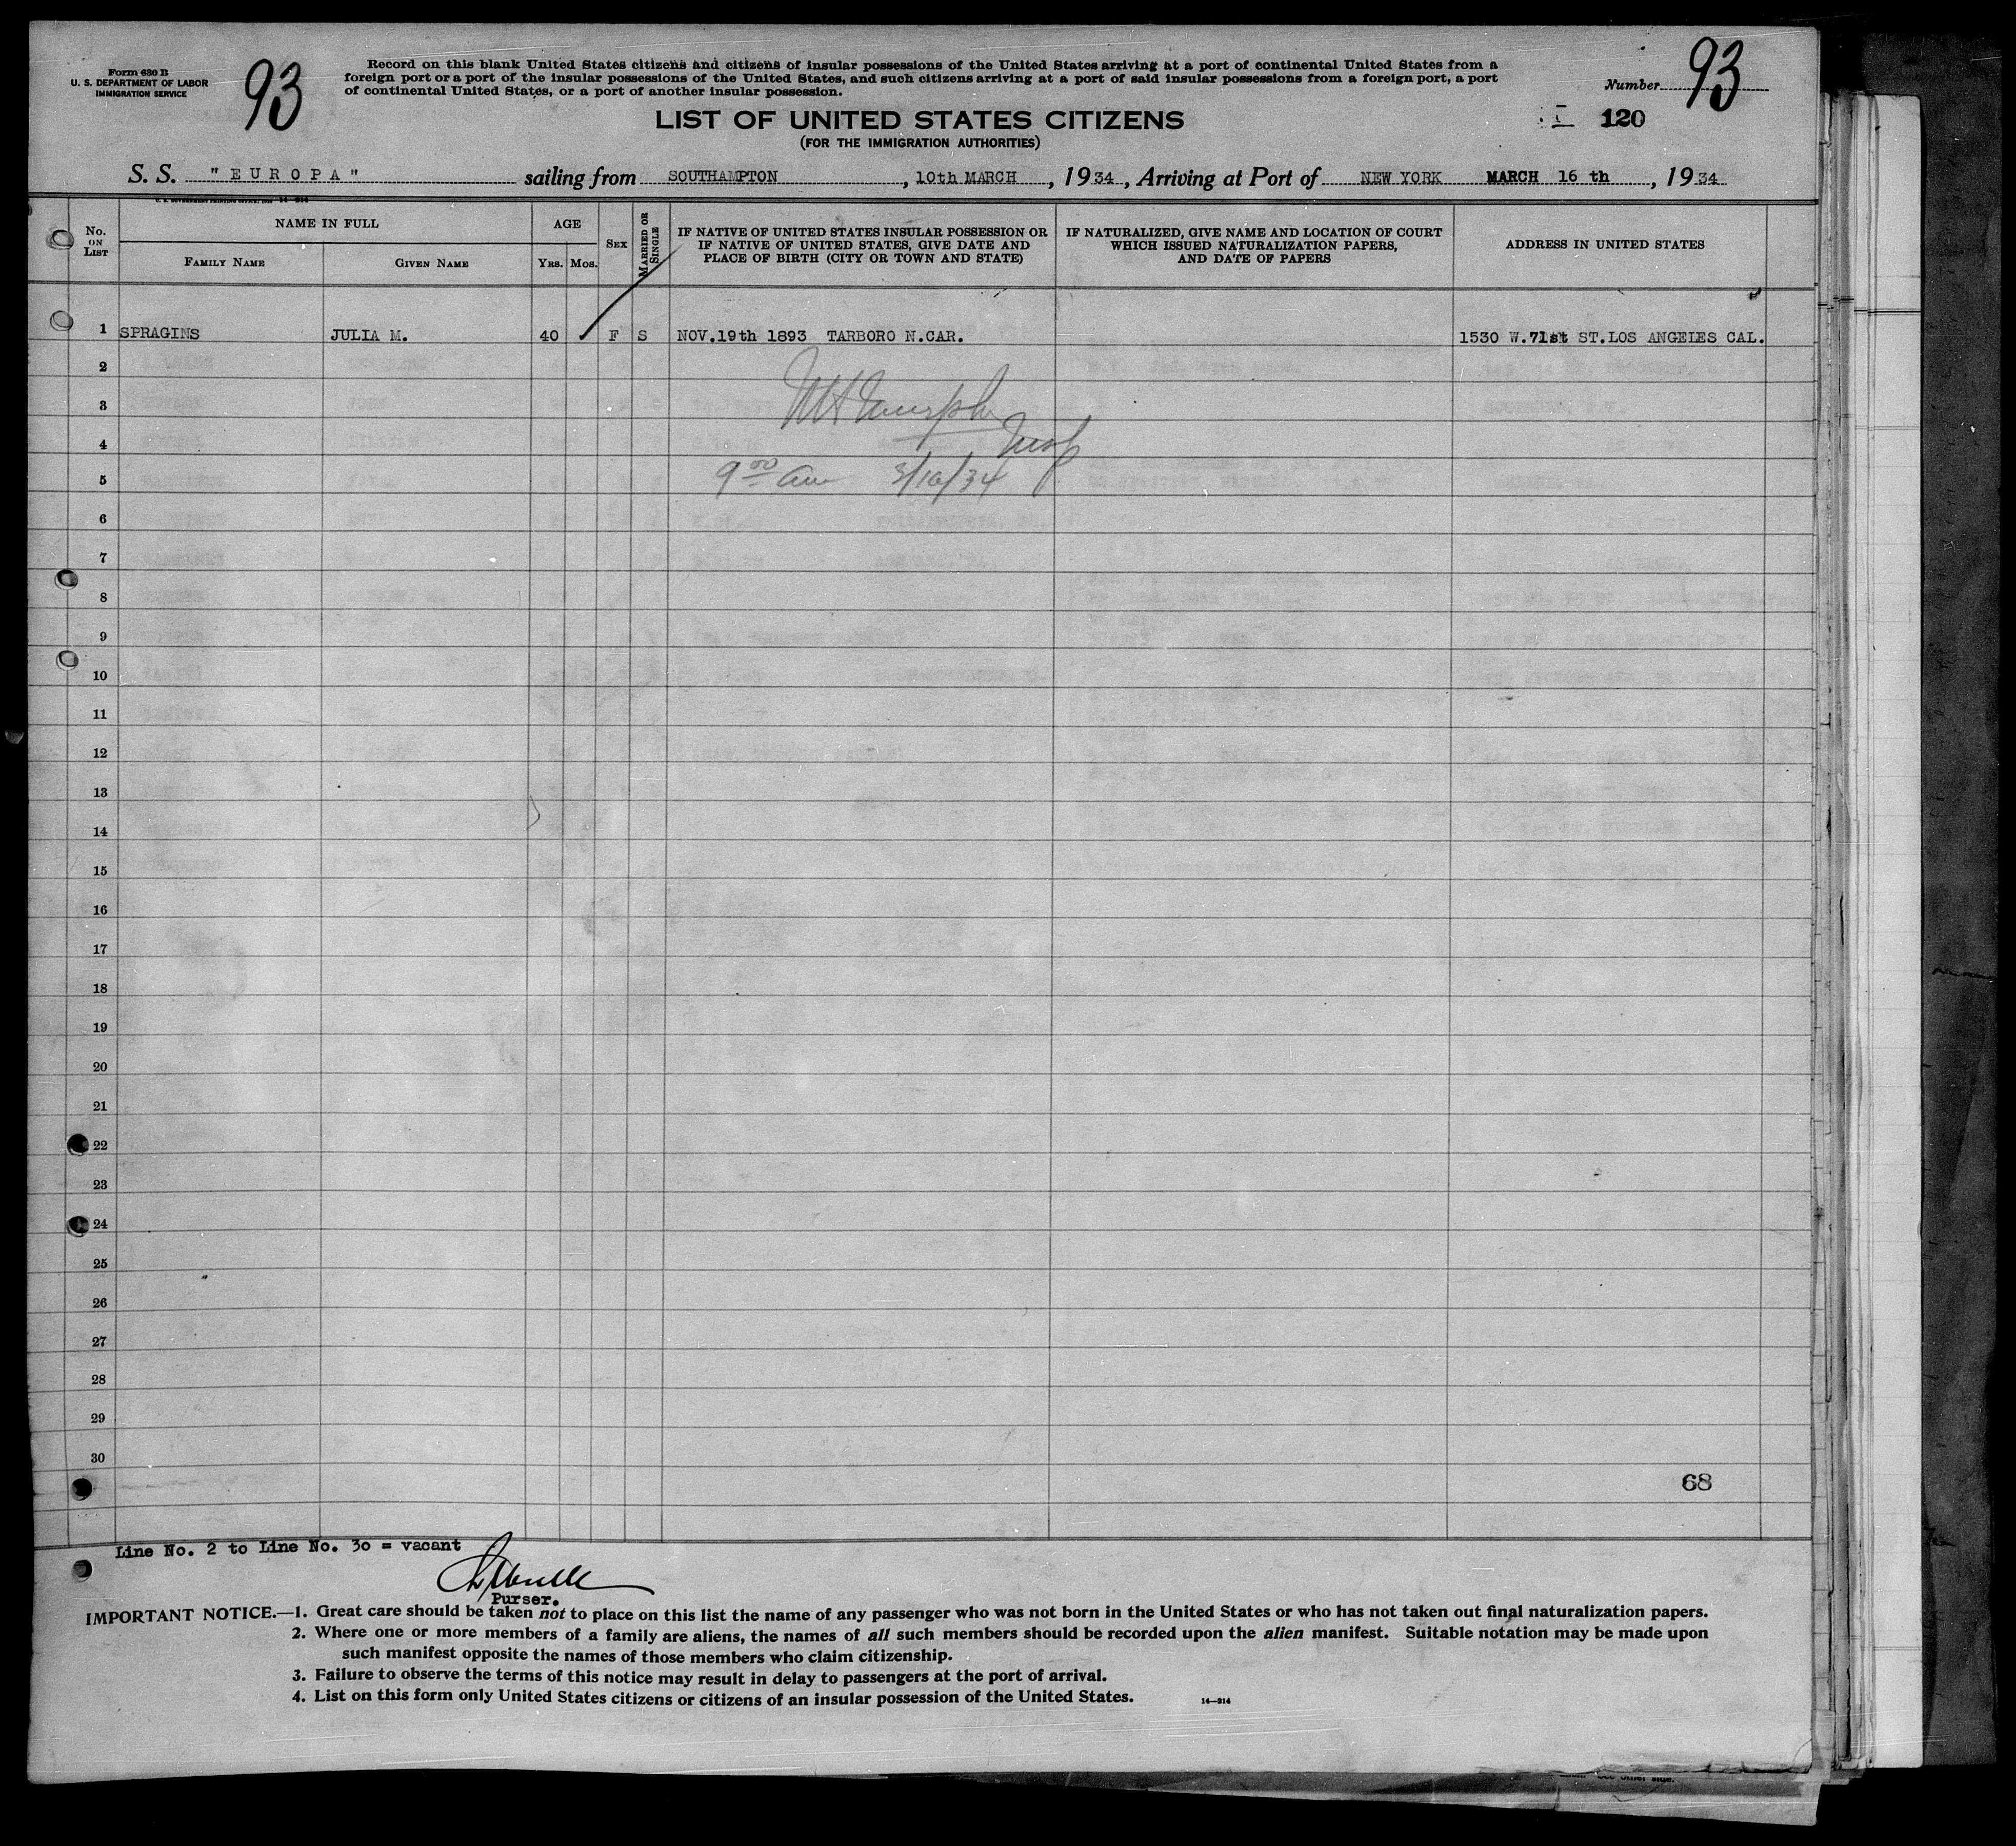 Form 630 B
U. S. DEPARTMENT OF LABOR
IMMIGRATION SERVICE
93
Record on this blank United States citizens and citizens of insular possessions of the United States arriving at a port of continental United States from a
foreign port or a port of the insular possessions of the United States, and such citizens arriving at a port of said insular possessions from a foreign port, a port
of continental United States, or a port of another insular possession.
Number 93
LIST OF UNITED STATES CITIZENS
(FOR THE IMMIGRATION AUTHORITIES)
120
S. S. "EUROPA" sailing from SOUTHAMPTON, 10th MARCH, 1934, Arriving at Port of NEW YORK MARCH 16 th, 1934
No. ON LIST
NAME IN FULL
FAMILY NAME
GIVEN NAME
AGE
YRS. MOS.
SEX
MARRIED OR SINGLE
IF NATIVE OF UNITED STATES INSULAR POSSESSION OR
IF NATIVE OF UNITED STATES, GIVE DATE AND
PLACE OF BIRTH (CITY OR TOWN AND STATE)
IF NATURALIZED, GIVE NAME AND LOCATION OF COURT
WHICH ISSUED NATURALIZATION PAPERS,
AND DATE OF PAPERS
ADDRESS IN UNITED STATES
1 SPRAGINS JULIA M. 40 F S NOV.19th 1893 TARBORO N.CAR. 1530 W.71st ST.LOS ANGELES CAL.
2
3
4
Insp
5
9 00 am 3/16/34
6
7
8
9
10
11
12
13
14
15
16
17
18
19
20
21
22
23
24
25
26
27
28
29
30
68
Line No. 2 to Line No. 30 = vacant
Purser.
IMPORTANT NOTICE.—1. Great care should be taken not to place on this list the name of any passenger who was not born in the United States or who has not taken out final naturalization papers.
2. Where one or more members of a family are aliens, the names of all such members should be recorded upon the alien manifest. Suitable notation may be made upon
such manifest opposite the names of those members who claim citizenship.
3. Failure to observe the terms of this notice may result in delay to passengers at the port of arrival.
4. List on this form only United States citizens or citizens of an insular possession of the United States.
14—314